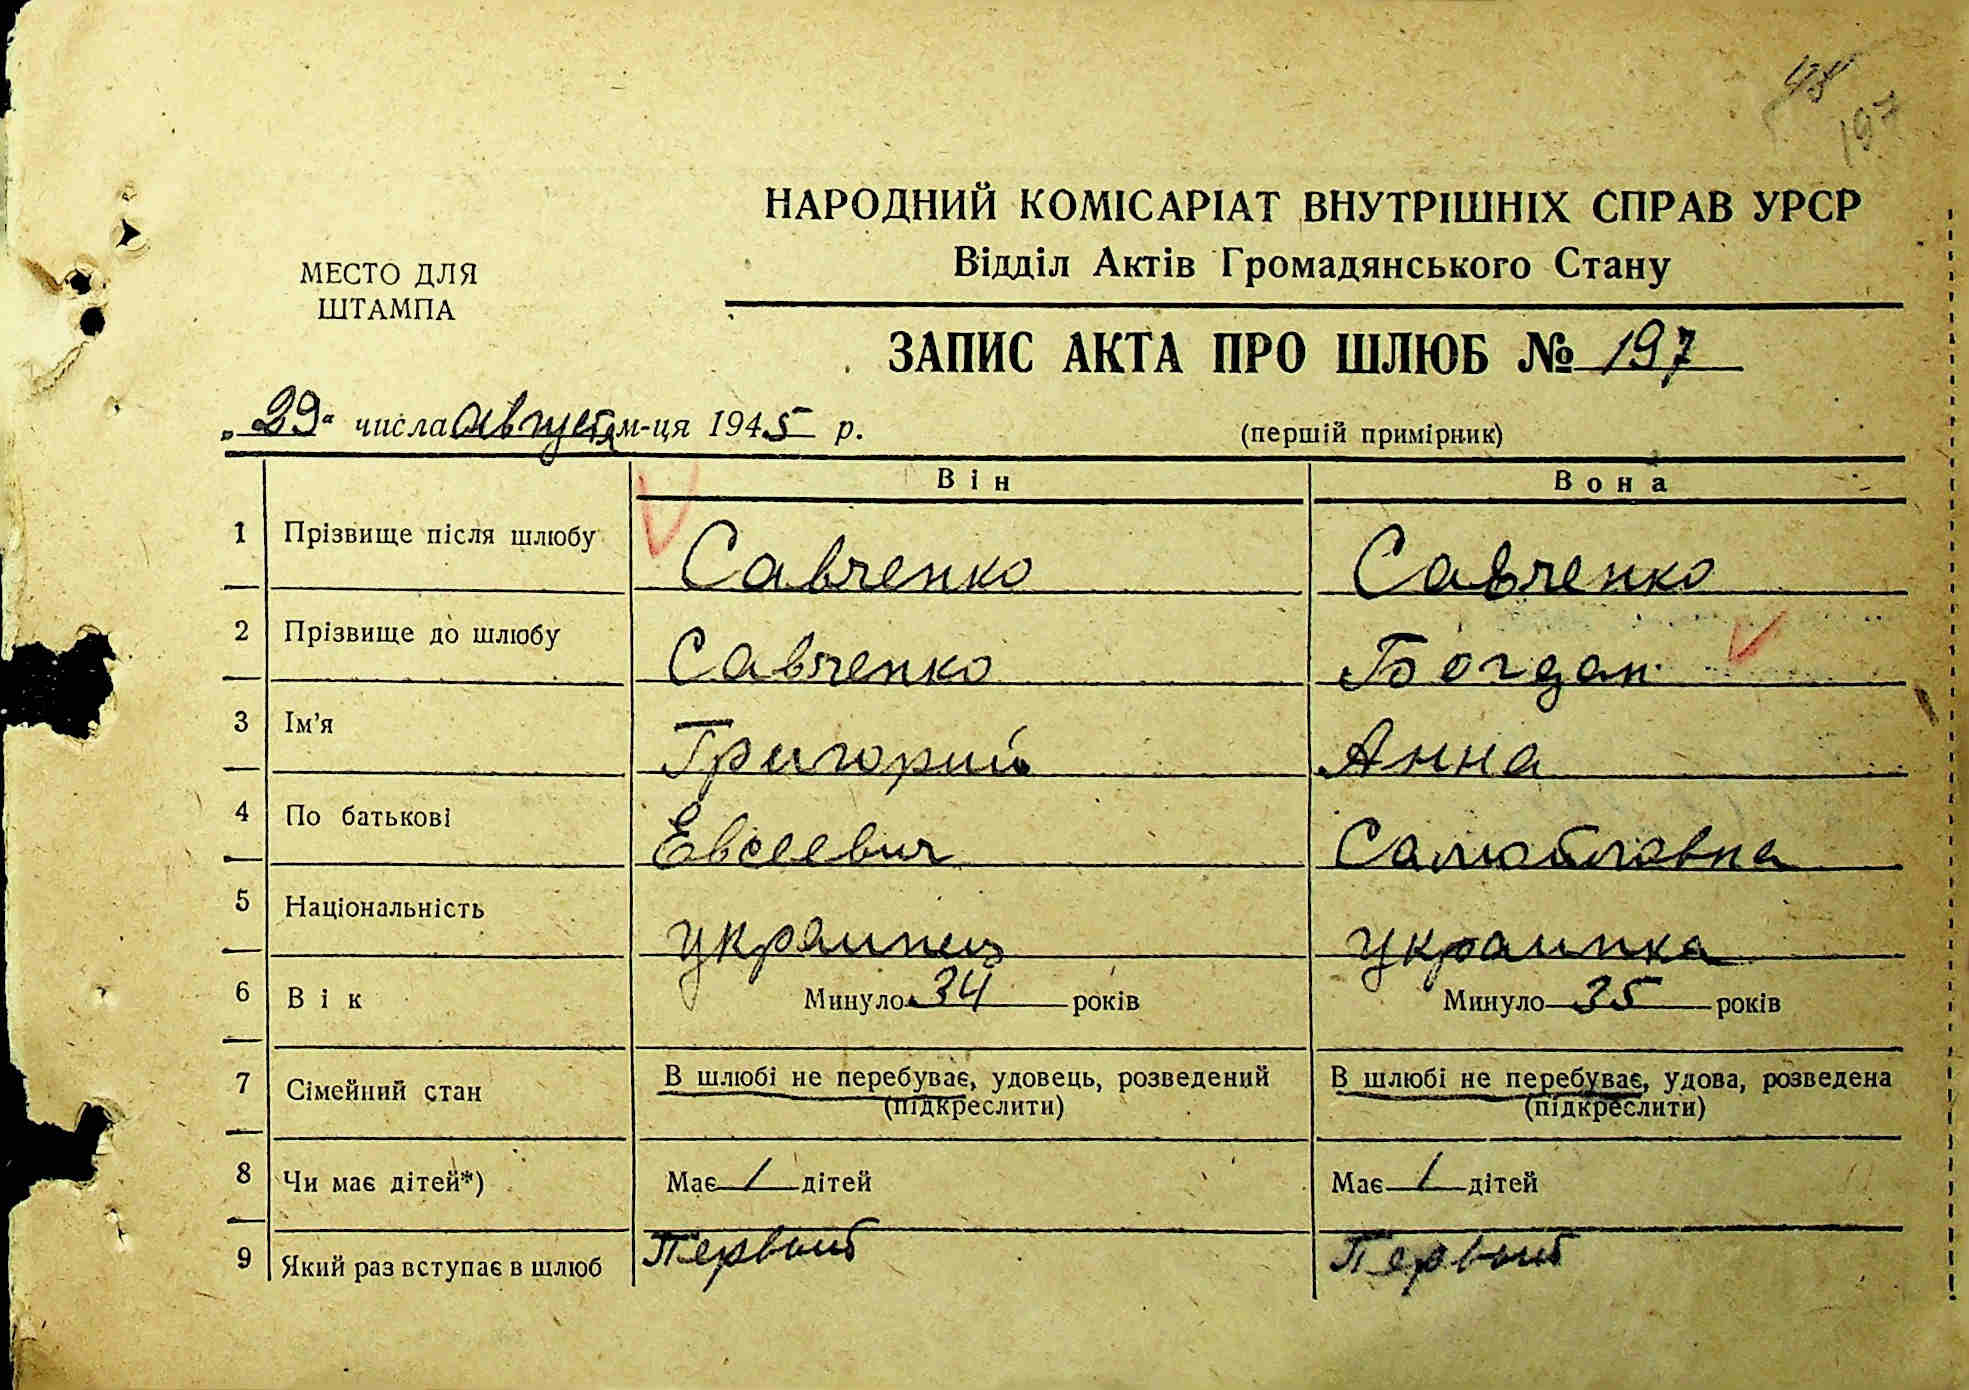 48
197
НАРОДНИЙ КОМІСАРІАТ ВНУТРІШНІХ СПРАВ УРСР
Відділ Актів Громадянського Стану
МЕСТО ДЛЯ
ШТАМПА
ЗАПИС АКТА ПРО ШЛЮБ № 197
„29" числа августа м-ця 1945 р.
(першій примірник)
Він Вона
1 Прізвище після шлюбу Савченко Савченко
2 Прізвище до шлюбу Савченко Богдан
3 Ім'я Григорий Анна
4 По батькові Евсеевич
5 Національність украинец украинка
6 Вік Минуло 34 років Минуло 35 років
7 Сімейний стан В шлюбі не перебуває, удовець, розведений В шлюбі не перебуває, удова, розведена
(підкреслити) (підкреслити)
8 Чи має дітей*) Має / дітей Має / дітей
9 Який раз вступає в шлюб Первый Первый